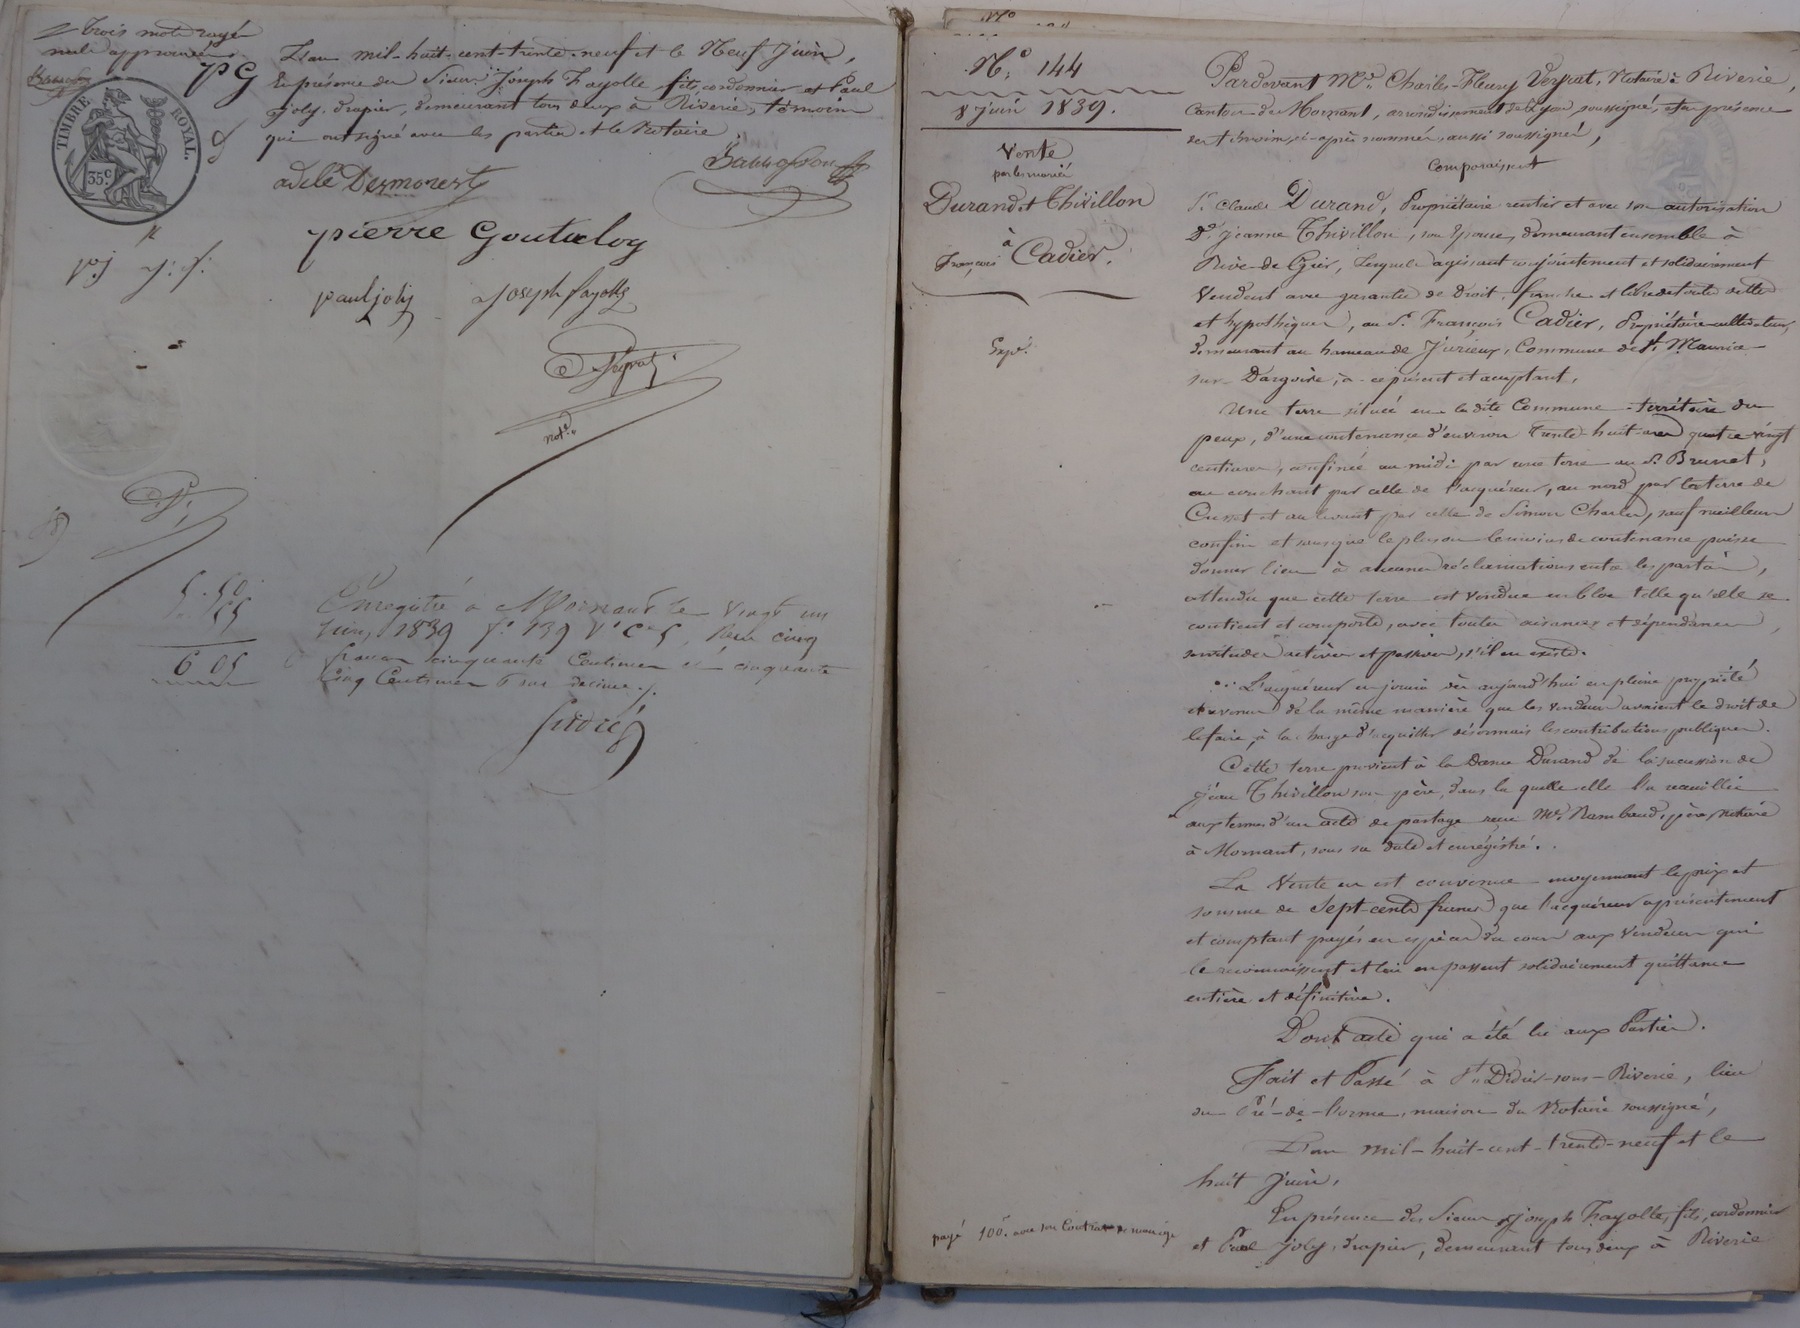 Trois mots rayés
nuls approuvés.
PG
TIMBRE ROYAL.
35c
L'an mil-huit-cent-trente-neuf et le Neuf Juin,
En présence des Sieurs Joseph Fayolle fils, cordonnier et Paul
Joly, drapier, demeurant tous deux à Riverie, témoins
qui ont signé avec les parties et le Notaire.
adèle Desmorest
pierre Goutaloy
pj j: f:
paul joly joseph fayolle
Veyrat
not.re
5. 50
. 55
6 05
Enregistré à Mornant le vingt un
Juin 1839 f.o 139 V.o C.e 5, Reçu cinq
francs cinquante Centimes et cinquante
Cinq Centimes p.r le décime ./.
N.o 144
8 Juin 1839.
Vente
par les mariés
Durand et Thivillon
à
François Cadier.
Exp.é
payé 100.f avec son Contrat de mariage
Pardevant M.e Charles-Fleury Veyrat, Notaire à Riverie,
Canton de Mornant, arrondissement de Lyon, soussigné, et en présence
des témoins, ci-après nommés, aussi soussignés,
Comparaissent
S.r Claude Durand, Propriétaire rentier et avec son autorisation
D.e Jeanne Thivillon, son Epouse, demeurant ensemble à
Rive-de-Gier, Lesquels agissant conjointement et solidairement
Vendent avec garantie de droit, franche et libre de toute dettes
et hypothèques, au S.r François Cadier, Propriétaire-cultivateur,
demeurant au hameau de Jurieux, Commune de S.t Maurice
sur-Dargoire, à ce présent et acceptant,
Une terre située en la dite Commune-territoire du
peux, d'une contenance d'environ trente-huit ares quatre-vingt
centiares, confinée au midi par une terre au S.r Brunet,
au couchant par celle de l'acquéreur, au nord par la terre de
Cusset et au levant par celle de Simon Charles, sauf meilleurs
confins et sans que le plus ou le moins de contenance puisse
donner lieu à aucunes réclamations entre les parties,
attendu que cette terre est vendue en bloc telle qu'elle se
contient et comporte, avec toutes aisances et dépendances,
servitudes actives et passives, s'il en existe.
L'acquéreur en jouira dès aujourd'hui en pleine propriété
et revenus de la même manière que les vendeurs avaient le droit de
le faire, à la charge d'acquitter désormais les contributions publiques.
Cette terre provient à la Dame Durand de la succession de
Jean Thivillon son père, dans la quelle elle l'a recueillie
aux termes d'un acte de partage reçu M.e Rambaud, père, Notaire
à Mornant, sous sa date et enrégistré.
La Vente en est convenue moyennant le prix et
somme de Sept-cents francs que l'acquéreur a présentement
et comptant payés en espèces du cours aux Vendeurs qui
le reconnaissent et lui en passent solidairement quittance
entière et définitive.
Dont acte qui a été lu aux Parties.
Fait et Passé à S.t Didier-sous-Riverie, lieu
du Pré-de-l'orme, maison du Notaire soussigné,
L'an mil-huit-cent-trente-neuf et le
huit Juin,
En présence des Sieurs Joseph Fayolle, fils, cordonnier
et Paul Joly, drapier, demeurant tous deux à Riverie